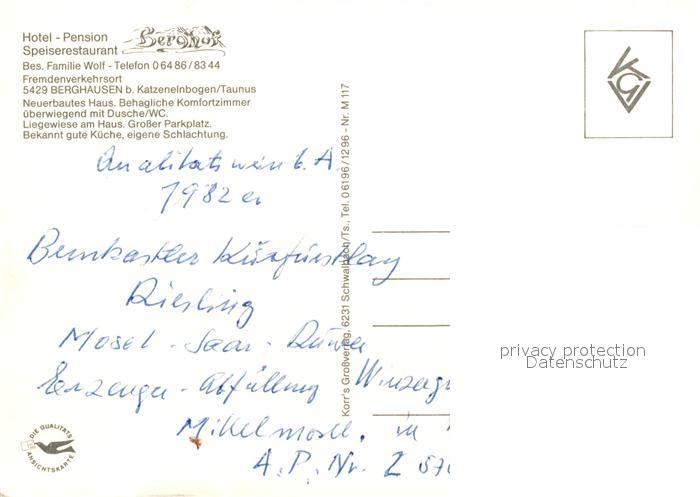 Hotel - Pension Berghof
Speiserestaurant
Bes. Familie Wolf - Telefon 0 64 86 / 83 44
Fremdenverkehrsort
5429 BERGHAUSEN b. Katzenelnbogen/Taunus
Neuerbautes Haus. Behagliche Komfortzimmer
überwiegend mit Dusche/WC.
Liegewiese am Haus. Großer Parkplatz.
Bekannt gute Küche, eigene Schlachtung.
Qualitätswein b. A.
1982 er
Bernkastler Kurfürstlay
Riesling
Mosel - Saar - Ruwer
Erzeuger - Abfüllung Winzerg
Mittelmosel. in
A. P. Nr. 2 57
Korr's Großverlag, 6231 Schwalbach/Ts., Tel. 0 6196 / 1296 - Nr. M 117
KGV
privacy protection
Datenschutz
DIE QUALITÄTS
ANSICHTSKARTE